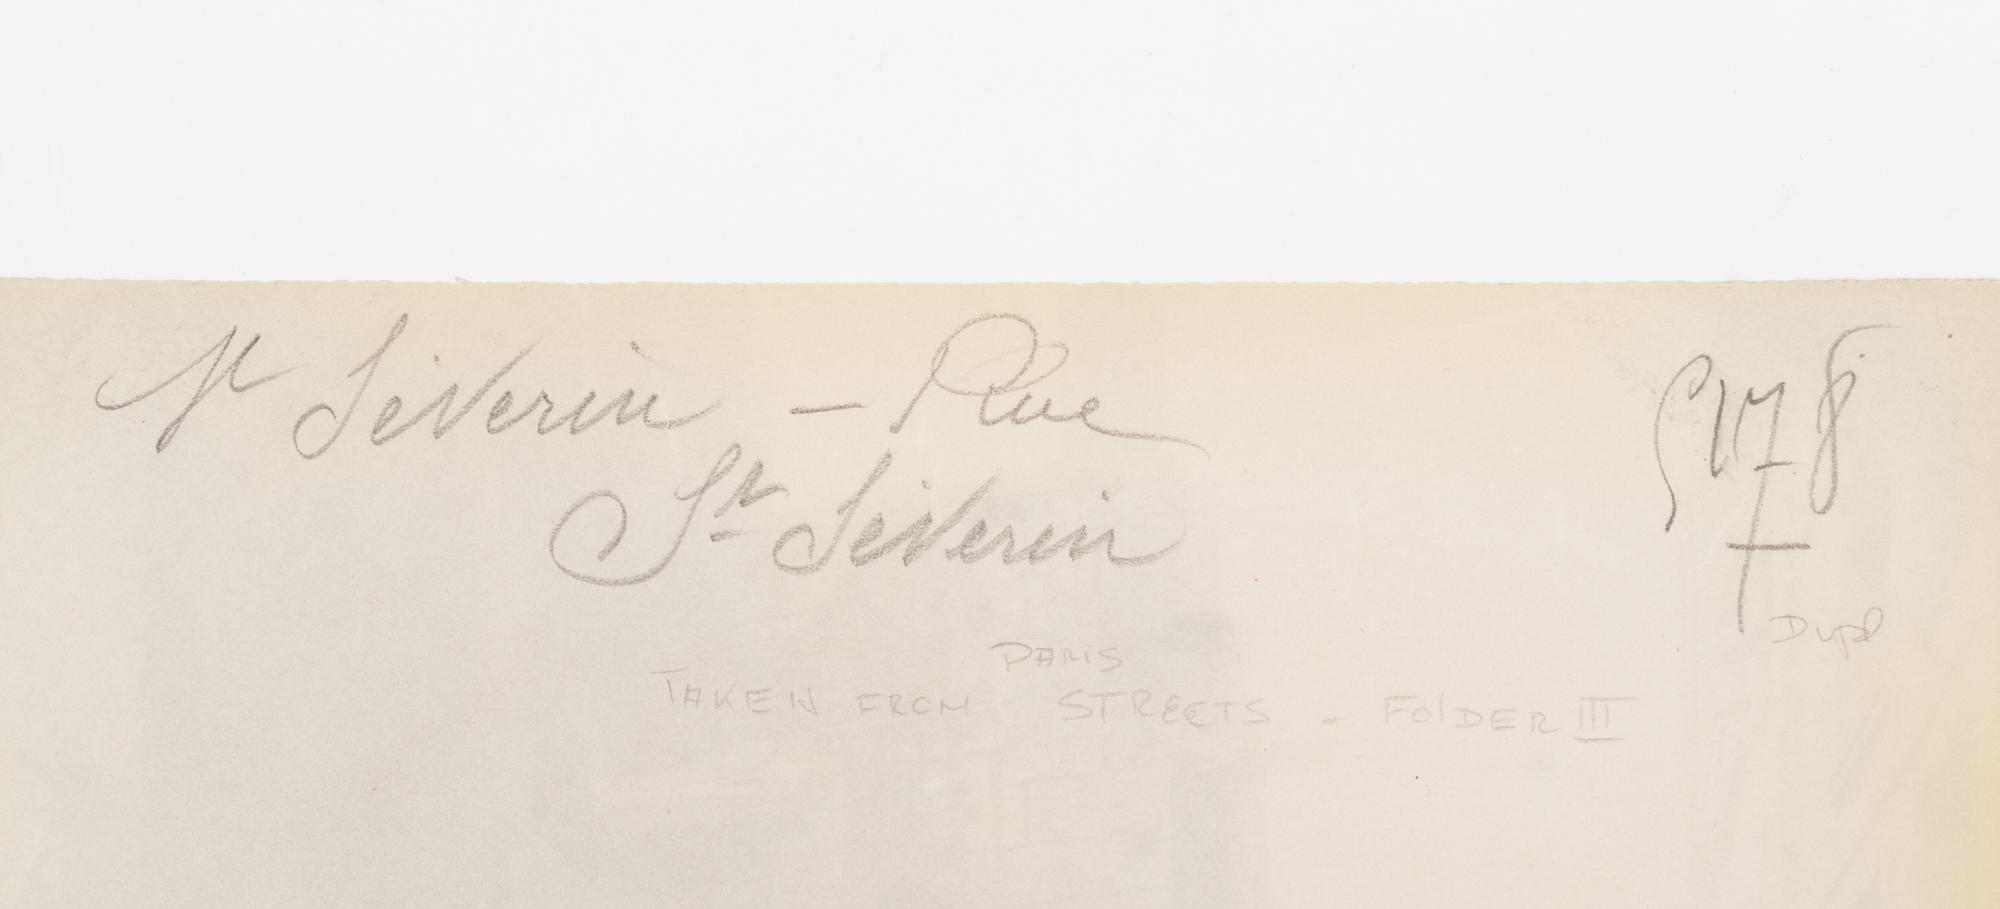 St Severin – Rue
St Severin
5178
Dupl
PARIS
TAKEN FROM STREETS – FOLDER III